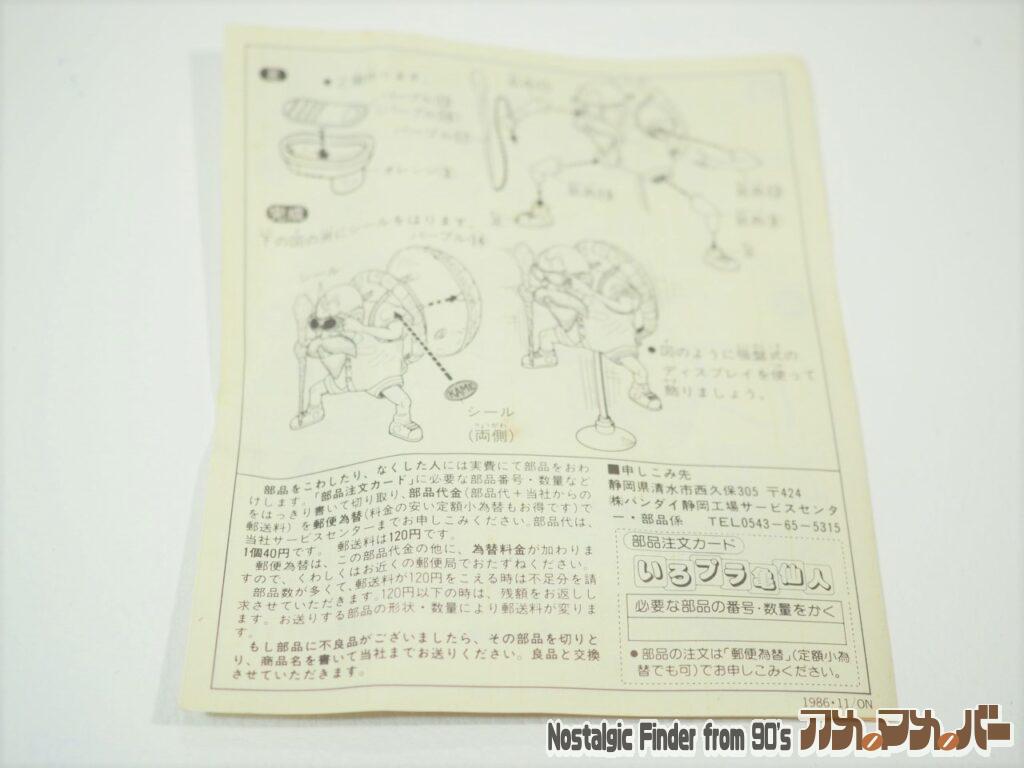 完成
下の図の所にシールをはります。
パープル14
シール
KAME
シール
(両側)
りょうがわ
●図のように吸盤式の
ディスプレイを使って
飾りましょう。
部品をこわしたり、なくした人には実費にて部品をおわ
けします。「部品注文カード」に必要な部品番号・数量など
をはっきり書いて切り取り、部品代金(部品代+当社からの
郵送料)を郵便為替(料金の安い定額小為替もお得です)で
当社サービスセンターまでお申しこみください。部品代は、
1個40円です。郵送料は120円です。
郵便為替は、この部品代金の他に、為替料金が加わりま
すので、くわしくはお近くの郵便局でおたずねください。
部品数が多くて、郵送料が120円をこえる時は不足分を請
求させていただきます。120円以下の時は、残額をお返しし
ます。お送りする部品の形状・数量により郵送料が変りま
す。
もし部品に不良品がございましたら、その部品を切りと
り、商品名を書いて当社までお送りください。良品と交換
させていただきます。
■申しこみ先
静岡県清水市西久保305 〒424
㈱バンダイ静岡工場サービスセンタ
ー・部品係 TEL0543-65-5315
部品注文カード
いろプラ亀仙人
必要な部品の番号・数量をかく
●部品の注文は「郵便為替」(定額小為
替でも可)でお申しこみください。
1986・11/ON
Nostalgic Finder from 90's アカ・マカ・バー